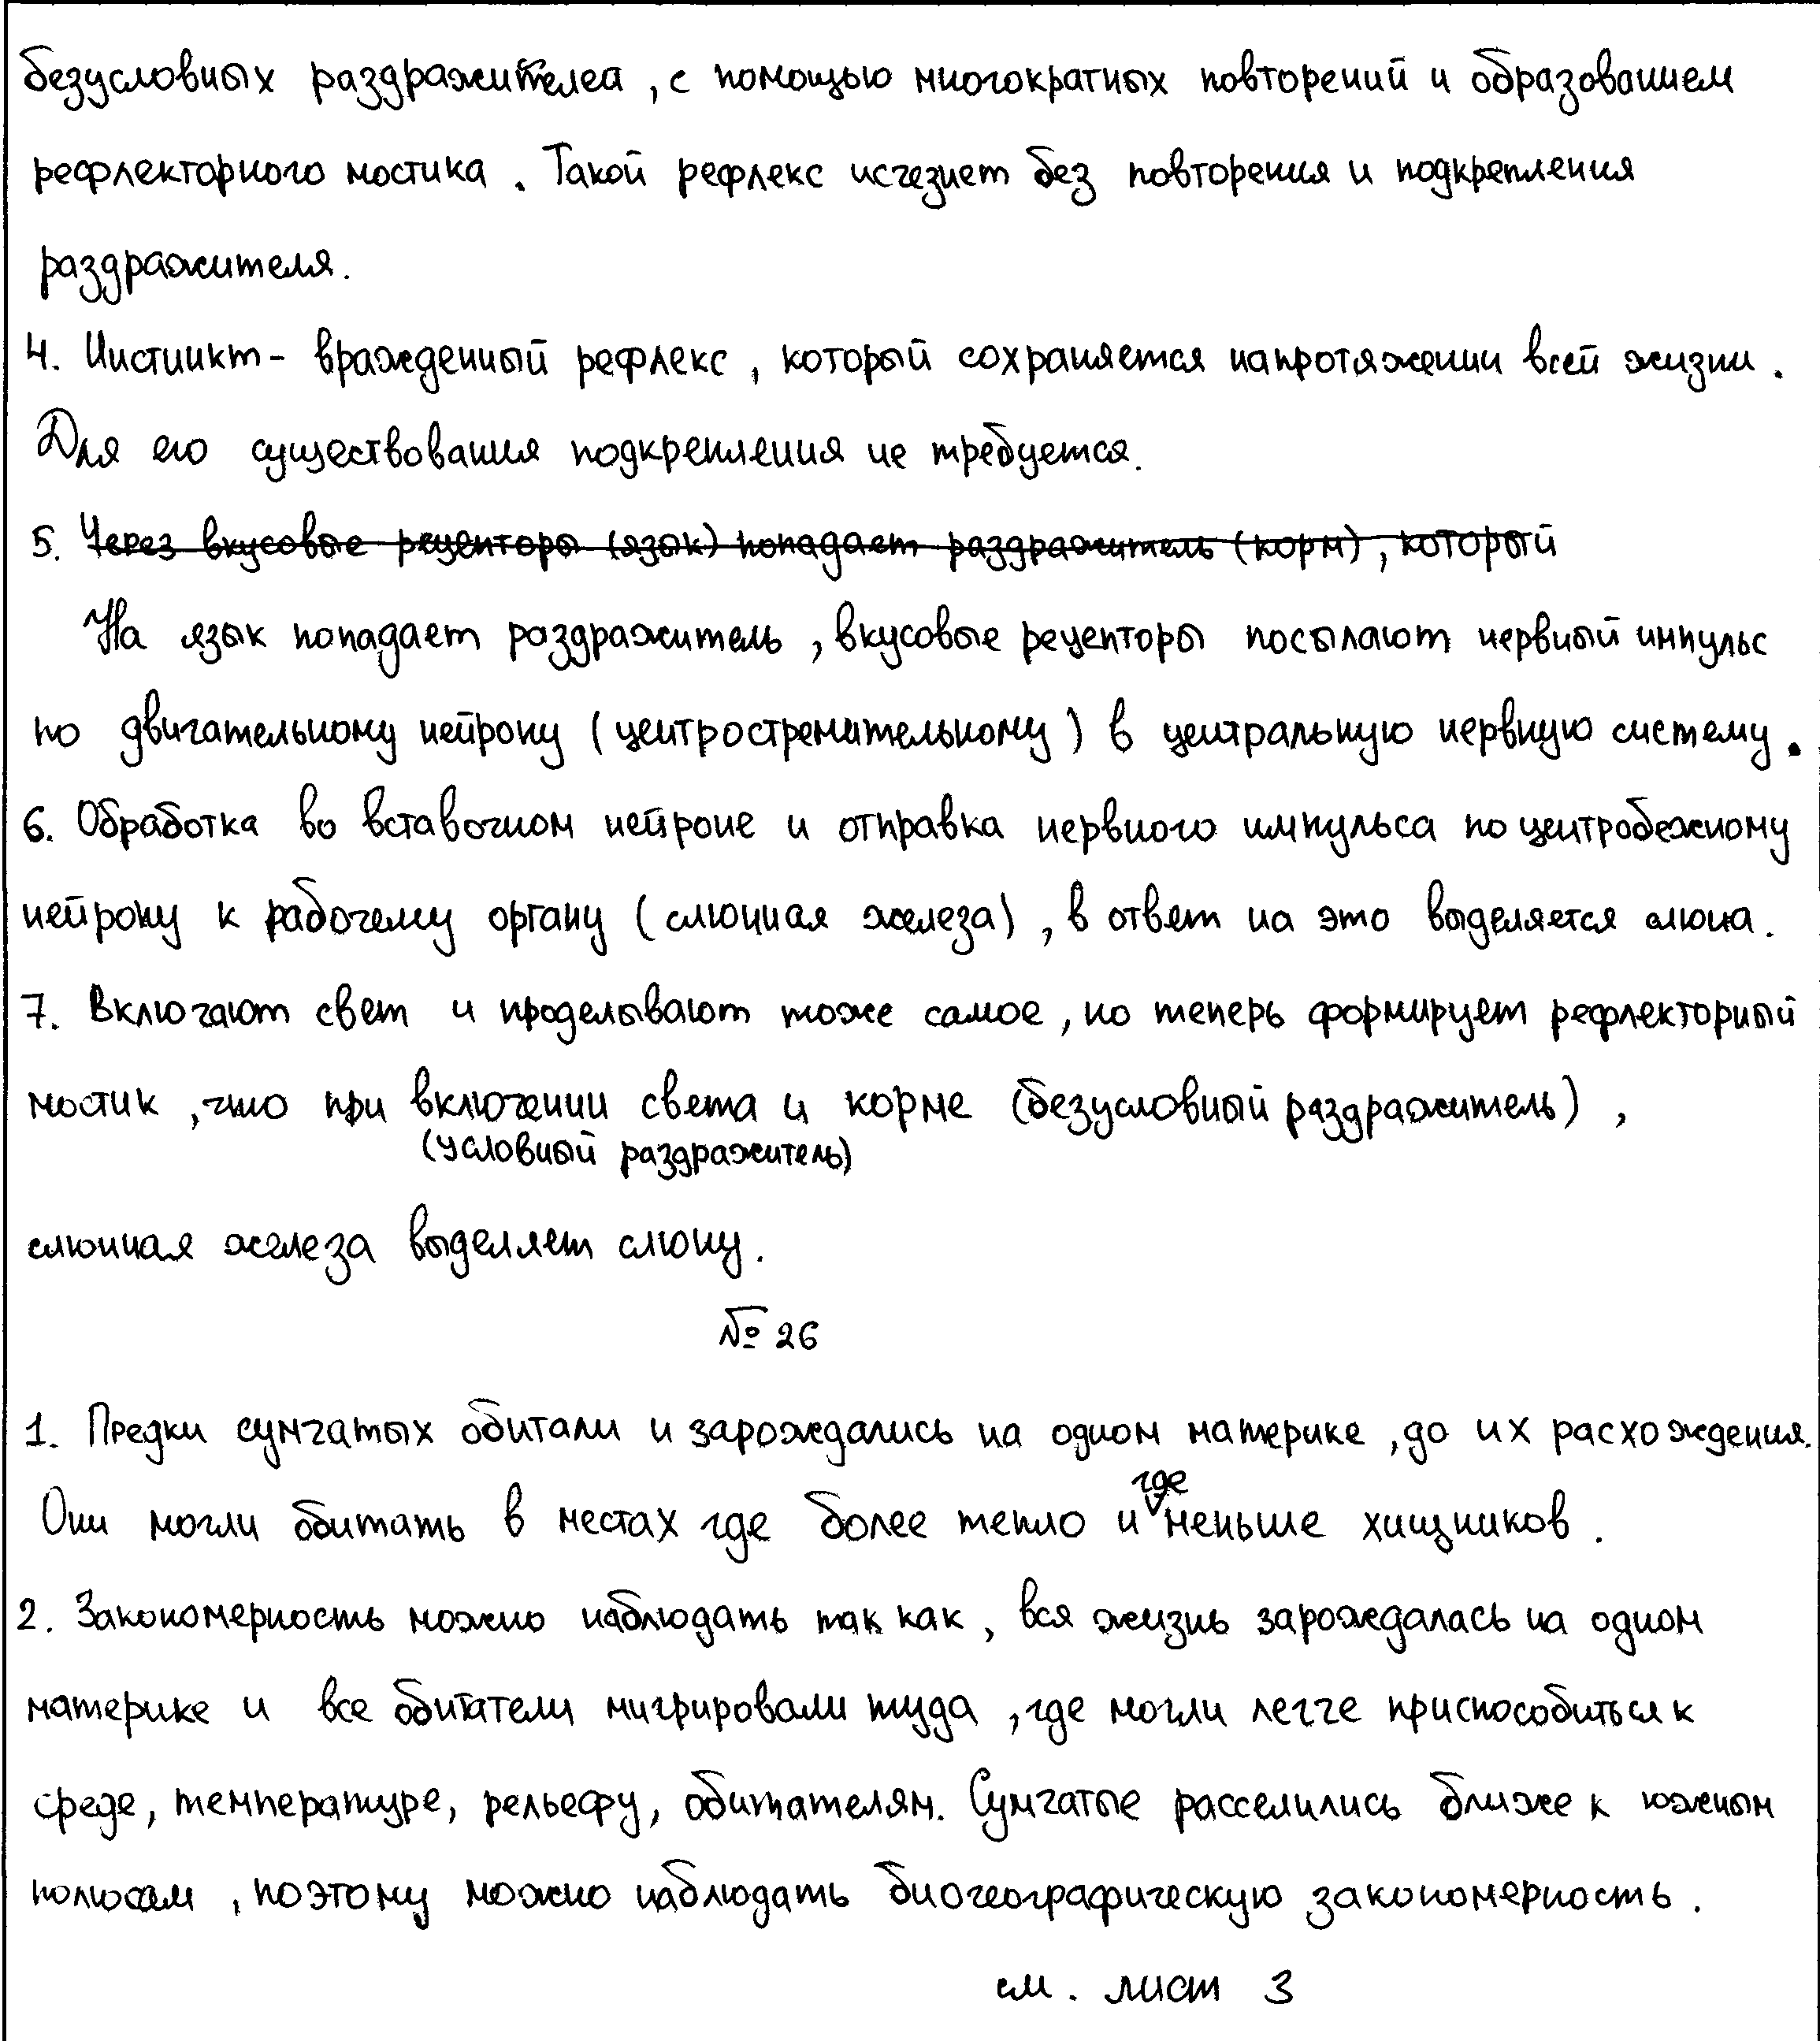 безусловных раздражителеа, с помощью многократных повторений и образованием
рефлекторного мостика. Такой рефлекс исчезнет без повторения и подкрепления
раздражителя.
4. Инстинкт - вражденный рефлекс, который сохраняется напротяжении всей жизни.
Для его существования подкрепления не требуется.
5. Через вкусовые рецепторы (язык) попадает раздражитель (корм), который
На язык попадает раздражитель, вкусовые рецепторы посылают нервный импульс
по двигательному нейрону (центростремительному) в центральную нервную систему.
6. Обработка во вставочном нейроне и отправка нервного импульса по центробежному
нейрону к рабочему органу (слюнная железа), в ответ на это выделяется слюна.
7. Включают свет и проделывают тоже самое, но теперь формирует рефлекторный
мостик, что при включении света и корме (безусловный раздражитель),
(условный раздражитель)
слюнная железа выделяет слюну.
№ 26
1. Предки сумчатых обитали и зарождались на одном материке, до их расхождения.
Они могли обитать в местах где более тепло и где меньше хищников.
2. Закономерность можно наблюдать так как, вся жизнь зарождалась на одном
материке и все обитатели мигрировали туда, где могли легче приспособиться к
среде, температуре, рельефу, обитателям. Сумчатые расселились ближе к южным
полюсам, поэтому можно наблюдать биогеографическую закономерность.
см. лист 3